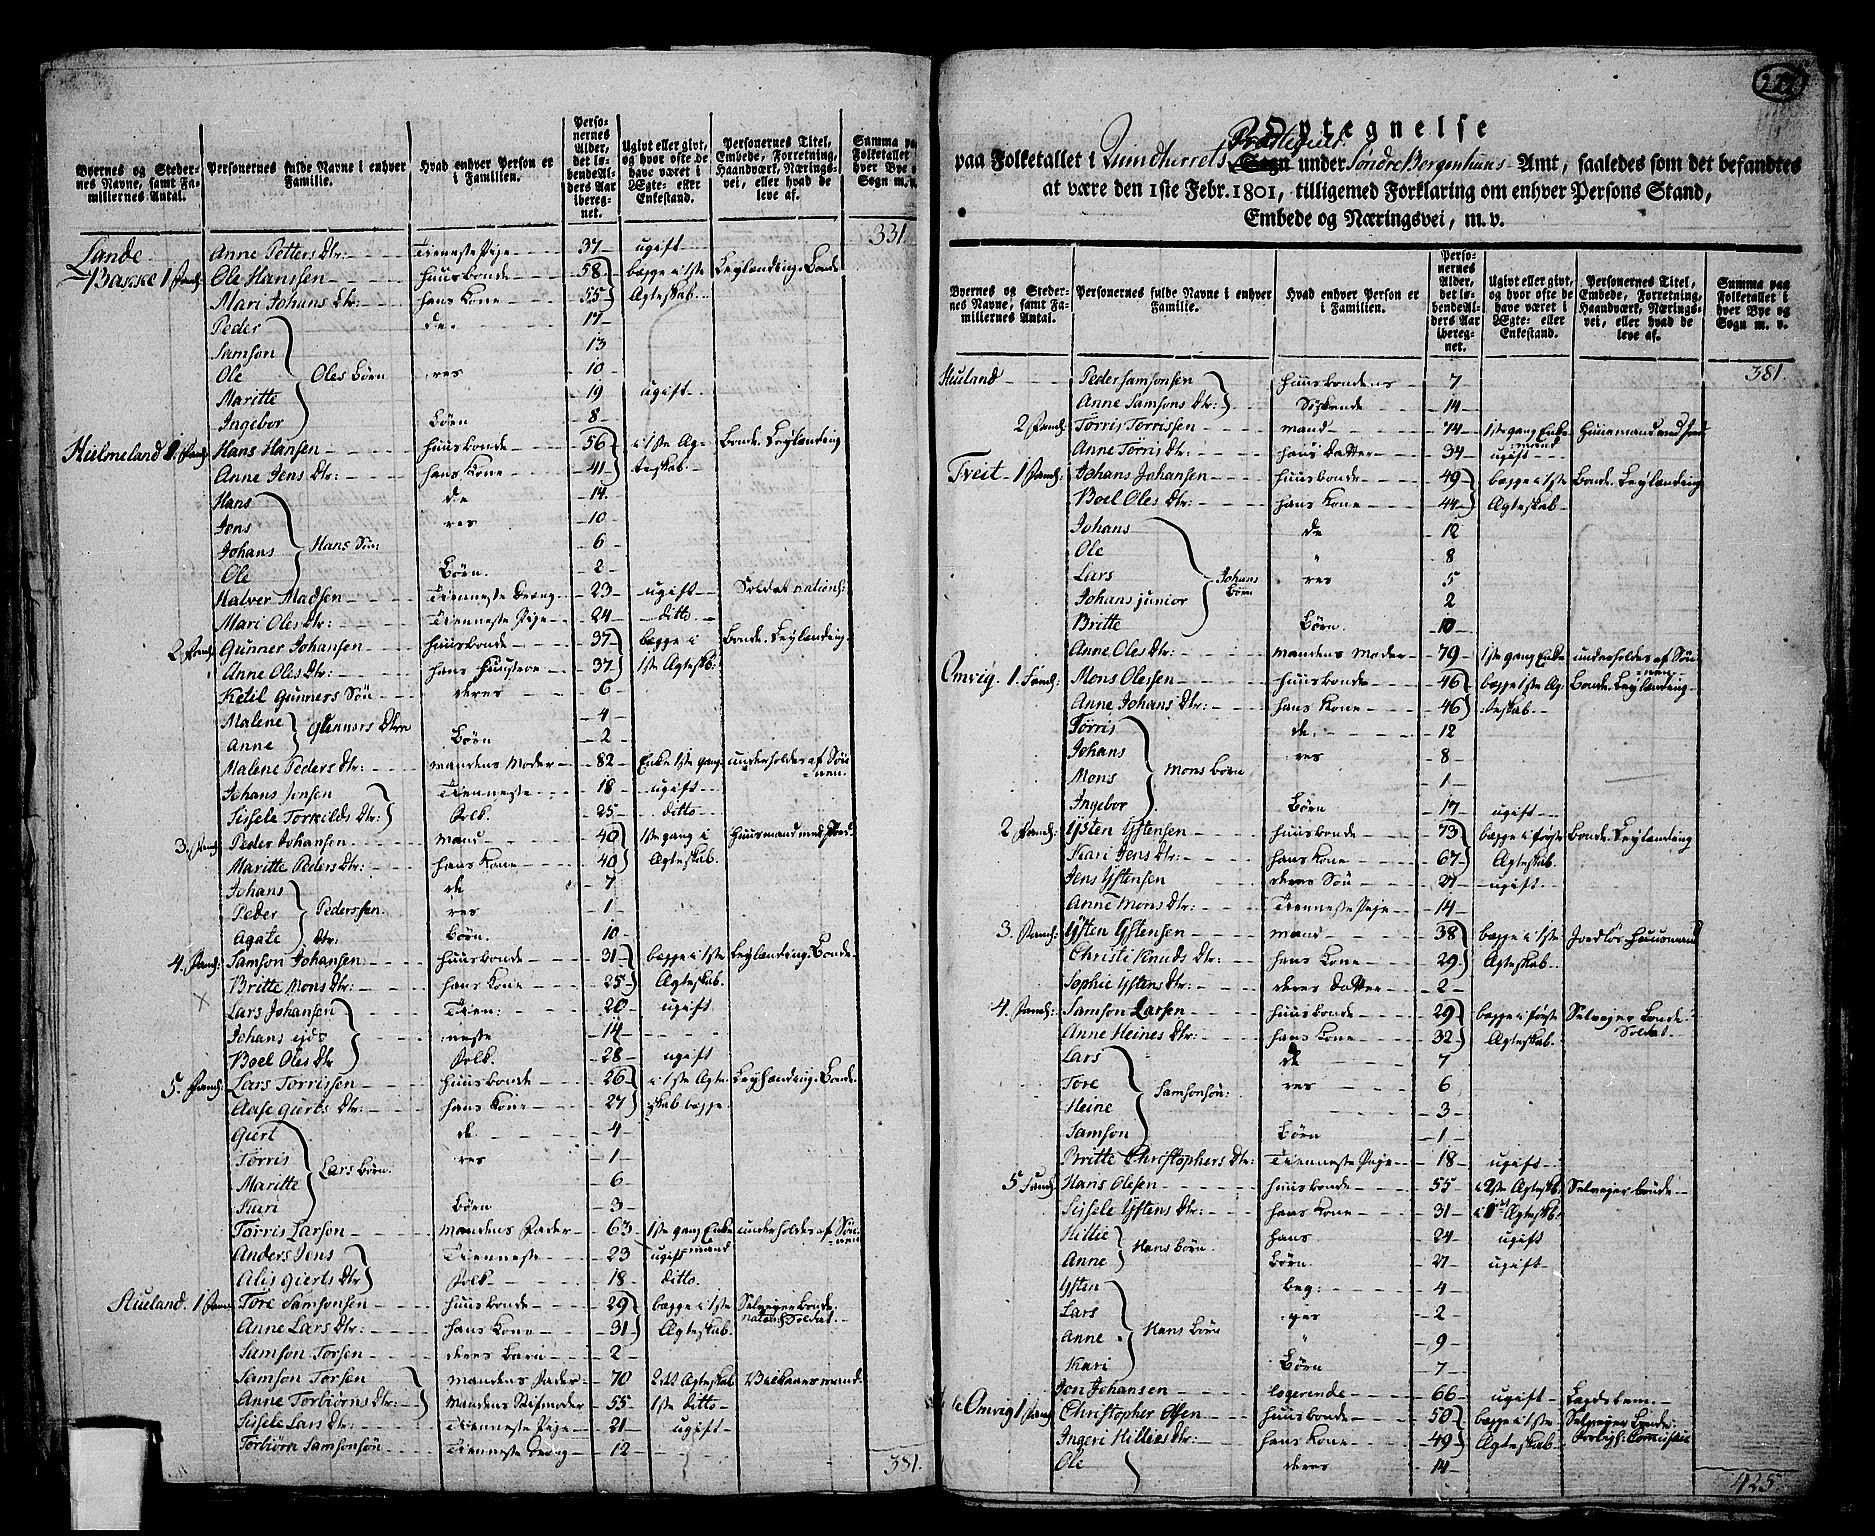 Byernes og Stedernes Navne, samt Familiernes Antal. Personernes fulde Navne i enhver Familie. Hvad enhver Person er i Familien. Personernes Alder, det løbende Alders Aar iberegnet. Ugivt eller givt, og hvor ofte de have været i Ægte- eller Enkestand. Personernes Titel, Embede, Forretning, Haandværk, Næringsvei, eller hvad de leve af. Summa paa Folketallet i hver Bye og Sogn m. v.
331
Lande Anne Petters Dtr: Tienneste Pige 37 ugift
Bakke 1 Famil: Ole Hanssen Huusbonde 58 begge i 1ste Leylænding. Bonde
Mari Johans Dtr: hans Kone 55 Ægteskab
Peder de 17
Samson 13
Ole Oles Børn res 10
Maritte 19 ugift
Ingebor Børn 8
Hielmeland 1. Famil: Hans Hansen Huusbonde 56 i 1ste Æg- Bonde. Leylænding
Anne Jens Dtr: hans Kone 41 teskab
Hans de 14
Jens res 10
Johans Hans Søn: 6
Ole Børn. 2
Halver Madsen Tienneste Dreng 23 ugift Soldat nationl:
Mari Oles Dtr: Tienneste Pige 24 ditto
2 Famil: Gunner Johansen Huusbonde 37 begge i Bonde. Leylænding
Anne Oles Dtr: hans Hustroe 37 1ste Ægteskab:
Ketil Gunners Søn deres 6
Malene Gunners Dtre 4
Anne Børn 2
Malene Peders Dtr: Mandens Moder 82 Enke 1ste gang underholdes af Sønnen.
Johans Jensen Tienneste 18 ugift
Sissele Torkilds Dtr: Folk. 25 ditto
3. Famil: Peder Johansen Mand 40 1ste gang i Huusmand med Jord.
Maritte Peders Dtr: hans Kone 40 Ægteskab.
Johans de 7
Peder Pederssen. res 1
Agate Dtr: Børn. 10
4. Famil: Samson Johansen Huusbonde 31 begge i 1ste Leylænding. Bonde
Britte Mons Dtr: hans Kone 25 Ægteskab.
Lars Johansen Tien: 20 ugift
Johans neste 14
Boel Oles Dtr Folk. 28 ugift
5. Famil: Lars Torrissen Huusbonde 26 i 1ste Ægte- Leylænding. Bonde.
Aase Gierts Dtr: hans Kone 27 skab begge
Giert de 4
Torris res 1
Maritte Lars Børn 6
Kari Børn 3
Torris Larsen Mandens Fader 63 1ste gang Enkemand underholdes af Sønnen
Anders Jens Tienneste 23 ugift
Alis Gierts Dtr Folk 18 ditto.
Hueland. 1 Fam: Tore Samsonsen Huusbonde 29 begge i 1ste Selvejer Bonde.
Anne Lars Dtr: hans Kone 31 Ægteskab. nationl: Soldat
Samson Torsen deres Barn 2
Samson Torsen Mandens Fader 70 2det Ægteskab Vilkaars mand
Anne Torbiørns Dtr: Mandens Stifmoder 55 1ste ditto
Sissele Lars Dtr: Tienneste Pige 21 ugift
Torbiørn Samsonsøn Tienneste Dreng 12
381.
Optegnelse
paa Folketallet i Quindherrets Præstegield Sogn under Søndre Bergenhuus Amt, saaledes som det befandtes
at være den 1ste Febr. 1801, tilligemed Forklaring om enhver Persons Stand,
Embede og Næringsvei, m. v.
Byernes og Stedernes Navne, samt Familiernes Antal. Personernes fulde Navne i enhver Familie. Hvad enhver Person er i Familien. Personernes Alder, det løbende Alders Aar iberegnet. Ugivt eller givt, og hvor ofte de have været i Ægte- eller Enkestand. Personernes Titel, Embede, Forretning, Haandværk, Næringsvei, eller hvad de leve af. Summa paa Folketallet i hver Bye og Sogn m. v.
381.
Hueland Peder Samsonsen Huusbondens 7
Anne Samsons Dtr: Søskende 14
2 Famil: Torris Torrissen Mand 74 1ste gang Enkemand Huusmand med Jord
Anne Torris Dtr: hans Datter 34 ugift
Treit 1 Famil: Johans Johansen Huusbonde 49 begge i 1ste Bonde. Leylænding
Boel Oles Dtr: hans Kone 44 Ægteskab
Johans de 12
Ole " 8
Lars Johans Børn res 5
Johans junior 2
Britte Børn 10
Anne Oles Dtr: Mandens Moder 79 1ste gang Enke underholdes af Sønnen
Omvig. 1. Famil: Mons Olessen Huusbonde 46 begge 1ste Æg- Bonde. Leylænding
Anne Johans Dtr: hans Kone 46 teskab
Torris de 12
Johans res 8
Mons Mons Børn 1
Ingebor Børn 17 ugift
2 Famil: Ysten Ystensen Huusbonde 73 begge i første Bonde. Leylænding
Kari Jens Dtr: hans Kone 67 Ægteskab.
Jens Ystensen deres Søn 27 ugift
Anne Mons Dtr: Tienneste Pige 14
3. Famil: Ysten Ystensen Mand 38 begge i 1ste Jordløs Huusmand
Christi Knuds Dtr: hans Kone 29 Ægteskab.
Sophie Ystens Dtr: deres Datter 2
4. Famil: Samson Larsen Huusbonde 29 begge i første Selvejer Bonde.
Anne Heines Dtr: hans Kone 32 Ægteskab. Soldat
Lars de 7
Tore res 6
Heine Samsonsøn: 3
Samson Børn 1
Britte Christophers Dtr: Tienneste Pige 18 ugift
5 Famil: Hans Olesen Huusbonde 55 i 2det Ægteskb. Selvejer Bonde
Sissele Ystens Dtr: hans Kone 31 i 1ste Ægteskb.
Hillie hans 24 ugift
Anne Hans Børn. Børn. 27 ugift
Ysten beg: 4
Lars ges 2
Anne Hans Børn " 9
Kari Børn 7
Jon Johansen logerende 66 ugift Lægdslem.
Omvig 1 Famil: Christopher Olsen Huusbonde 50 begge i 1ste Selvejer Bonde.
Ingeri Hillies Dtr: hans Kone 49 Ægteskab Forligs: Commissair
Ole deres 14
425